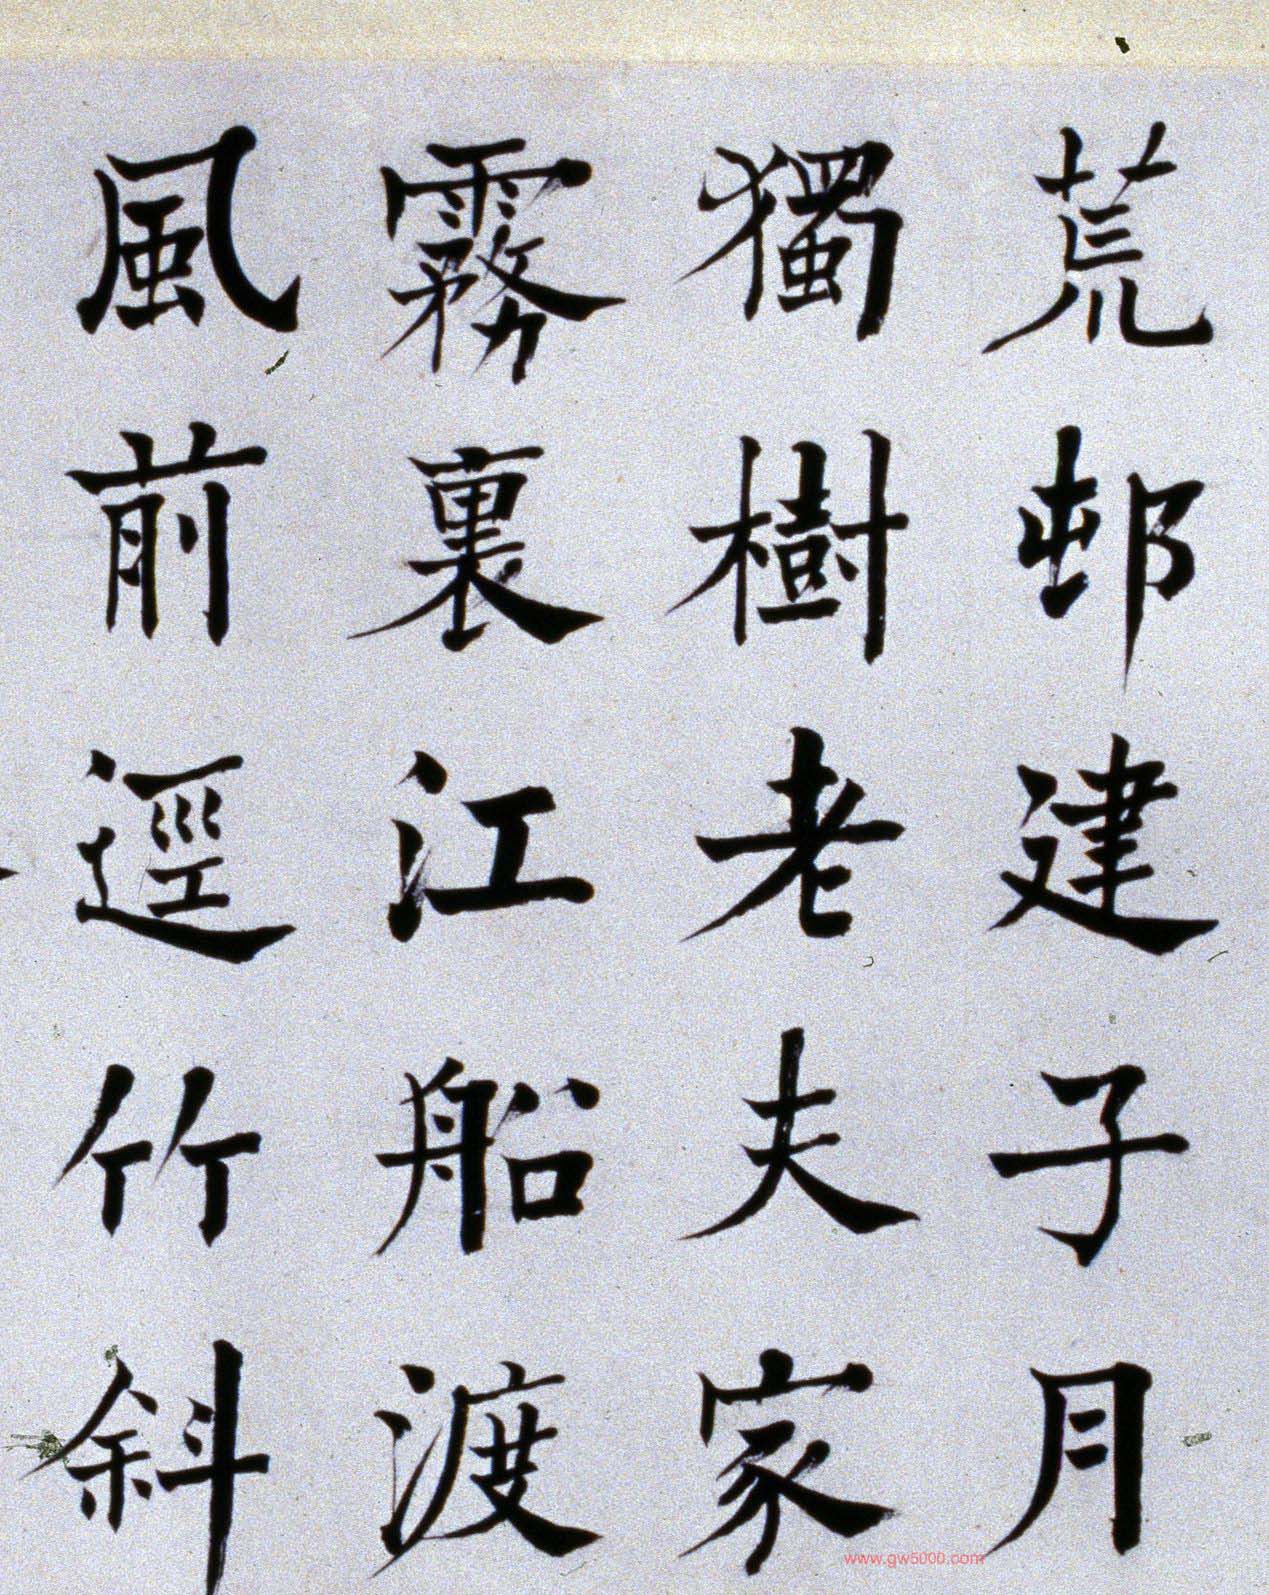 荒邨建子月
獨樹老夫家
霧裏江船渡
風前逕竹斜
www.gw5000.com